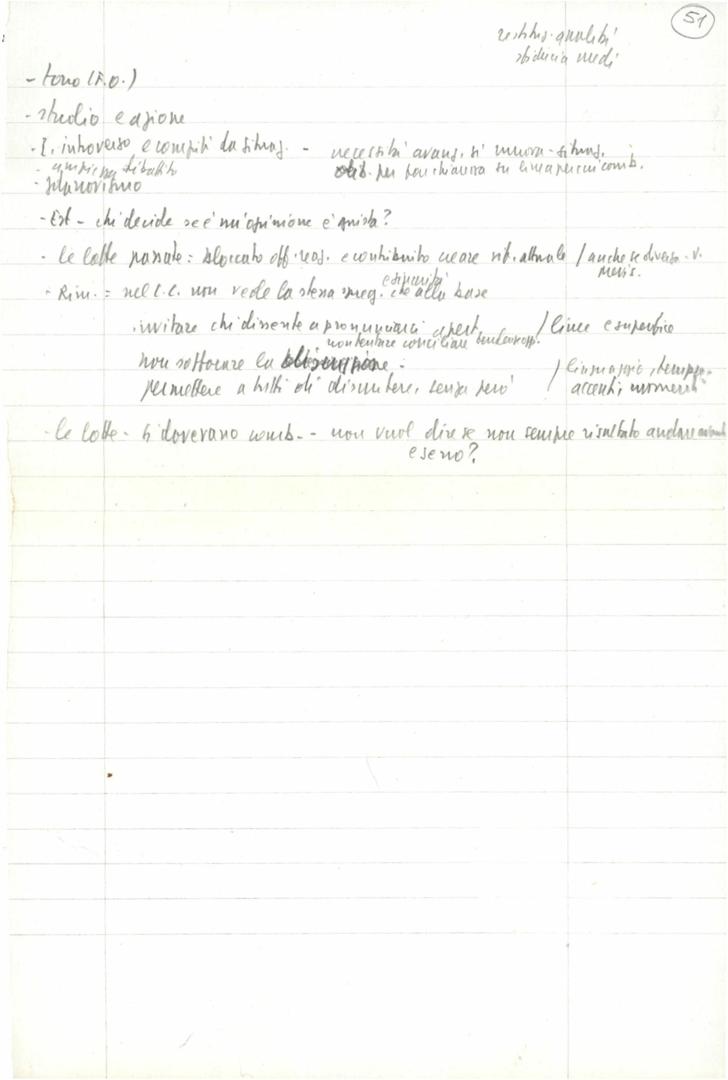 51
sfiducia medi
- tono (F.O.)
- studio e azione
- I. introverso e compiti da situaz. - necessità avanz. si muova - situaz.
- ampiezza dibattito per poi chiarirsi su linea per cui comb.
- Est - chi decide se è un'opinione è giusta?
- le lotte passate = bloccato off. reaz. e contribuito creare sit. attuale / anche se diverso - v.
- Rim. = nel C.C. non vede la stessa spreg. e sincerità che alla base
. invitare chi dissente a pronunciarsi apert. / linee e superfice
non tentare conciliare tendenze opp.
non soffocare la discussione -
permettere a tutti di discutere, senza però / accenti, momenti
- le lotte - si dovevano comb. - non vuol dire se non sempre risultato andare avanti
e se no?